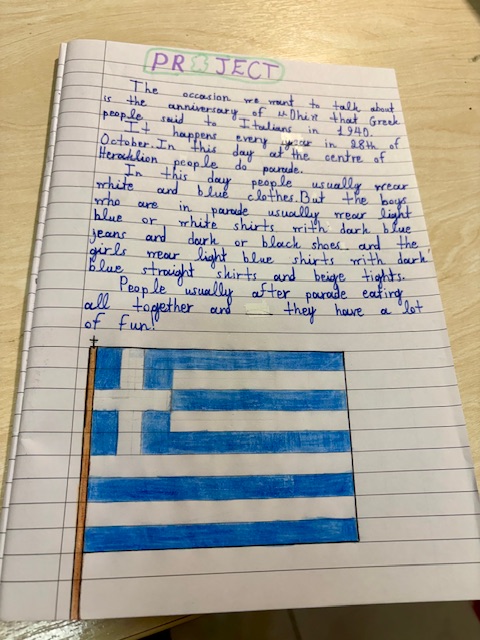 PROJECT
The occasion we want to talk about
is the anniversary of «Ohi» that Greek
people said to Italians in 1940.
It happens every year in 28th of
October. In this day at the centre of
Heraklion people do parade.
In this day people usually wear
white and blue clothes. But the boys
who are in parade usually wear light
blue or white shirts with dark blue
jeans and dark or black shoes and the
girls wear light blue shirts with dark
blue straight skirts and beige tights.
People usually after parade eating
all together and they have a lot
of fun!